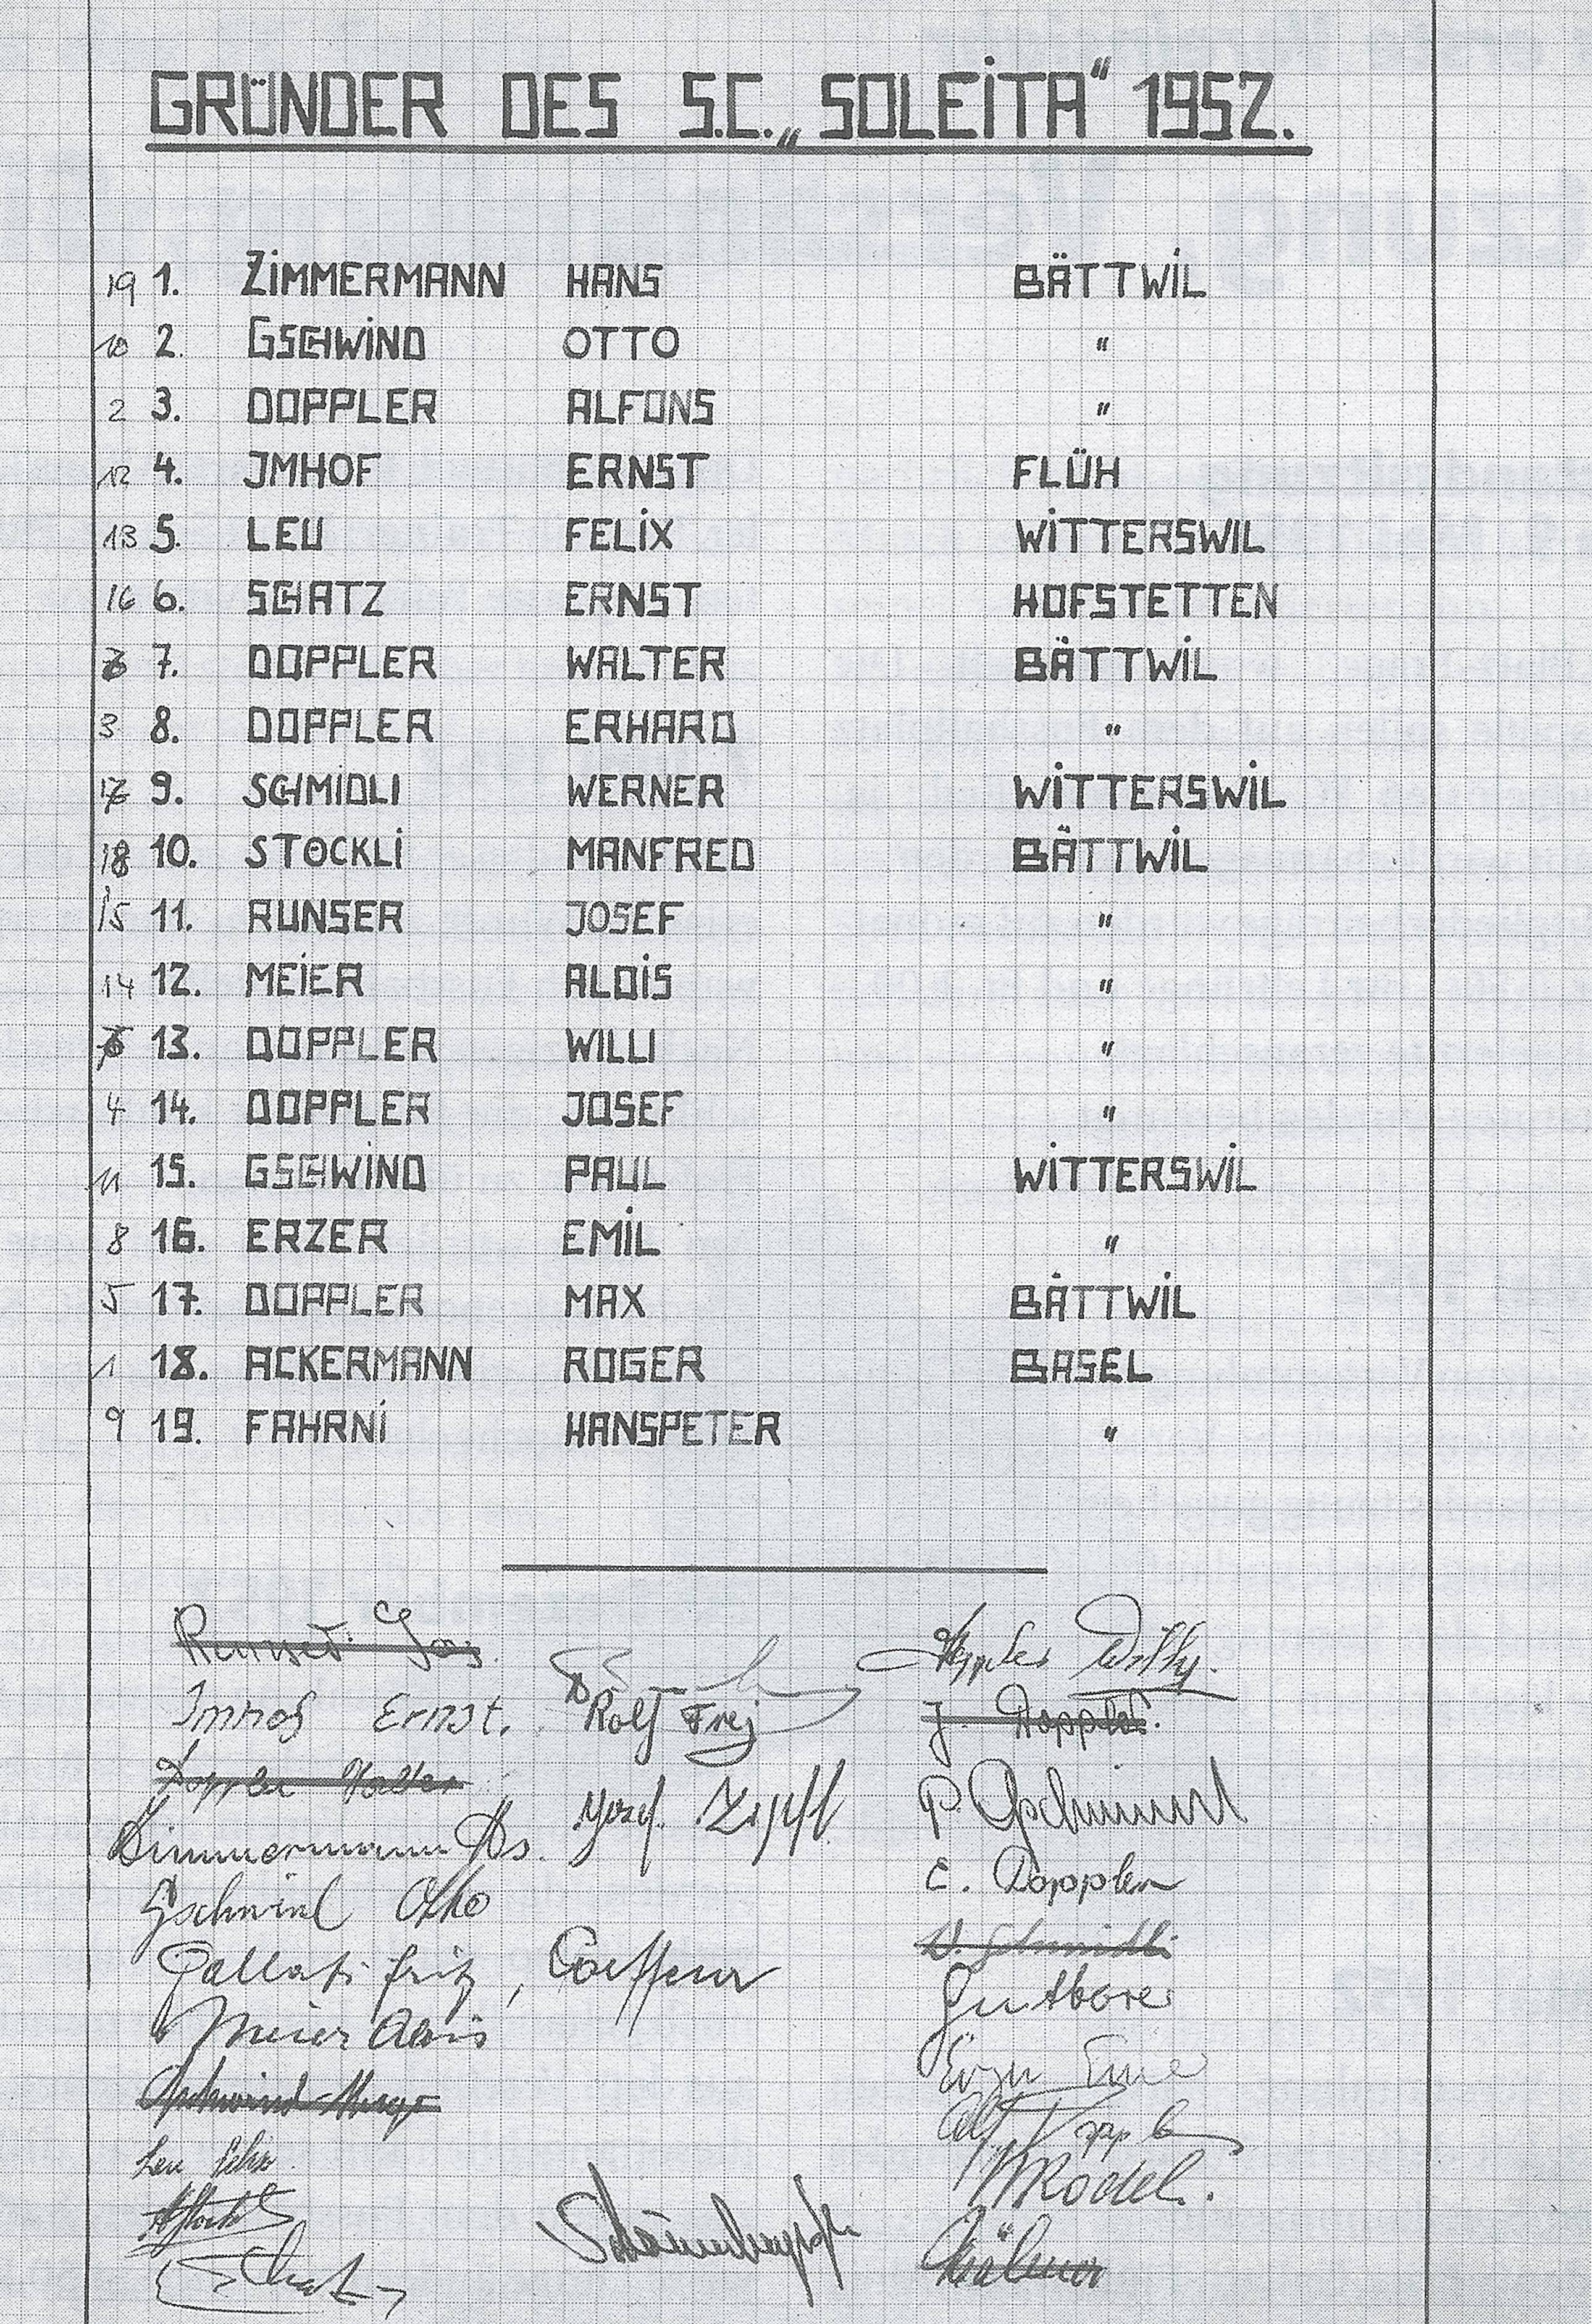 GRÜNDER DES S.C. „SOLEITA“ 1952.
19 1. ZIMMERMANN HANS BÄTTWIL
10 2. GSCHWIND OTTO "
2 3. DOPPLER ALFONS "
12 4. JMHOF ERNST FLÜH
13 5. LEU FELIX WITTERSWIL
16 6. SCHATZ ERNST HOFSTETTEN
7. DOPPLER WALTER BÄTTWIL
3 8. DOPPLER ERHARD "
17 9. SCHMIDLI WERNER WITTERSWIL
18 10. STÖCKLI MANFRED BÄTTWIL
15 11. RUNSER JOSEF "
14 12. MEIER ALOIS "
13. DOPPLER WILLI "
4 14. DOPPLER JOSEF "
11 15. GSCHWIND PAUL WITTERSWIL
8 16. ERZER EMIL "
5 17. DOPPLER MAX BÄTTWIL
1 18. ACKERMANN ROGER BASEL
9 19. FAHRNI HANSPETER "
Runser Jos.
Doppler Willy.
Imhof Ernst.
Rolf Frej
J. Doppler.
Doppler Walter
Josef
P. Gschwind
Zimmermann Hs.
E. Doppler
Gschwind Otto
W. Schmidli
Gallati Fritz, Coiffeur
Meier Alois
Erzer Emil
Gschwind
Alf. Doppler
Leu Felix